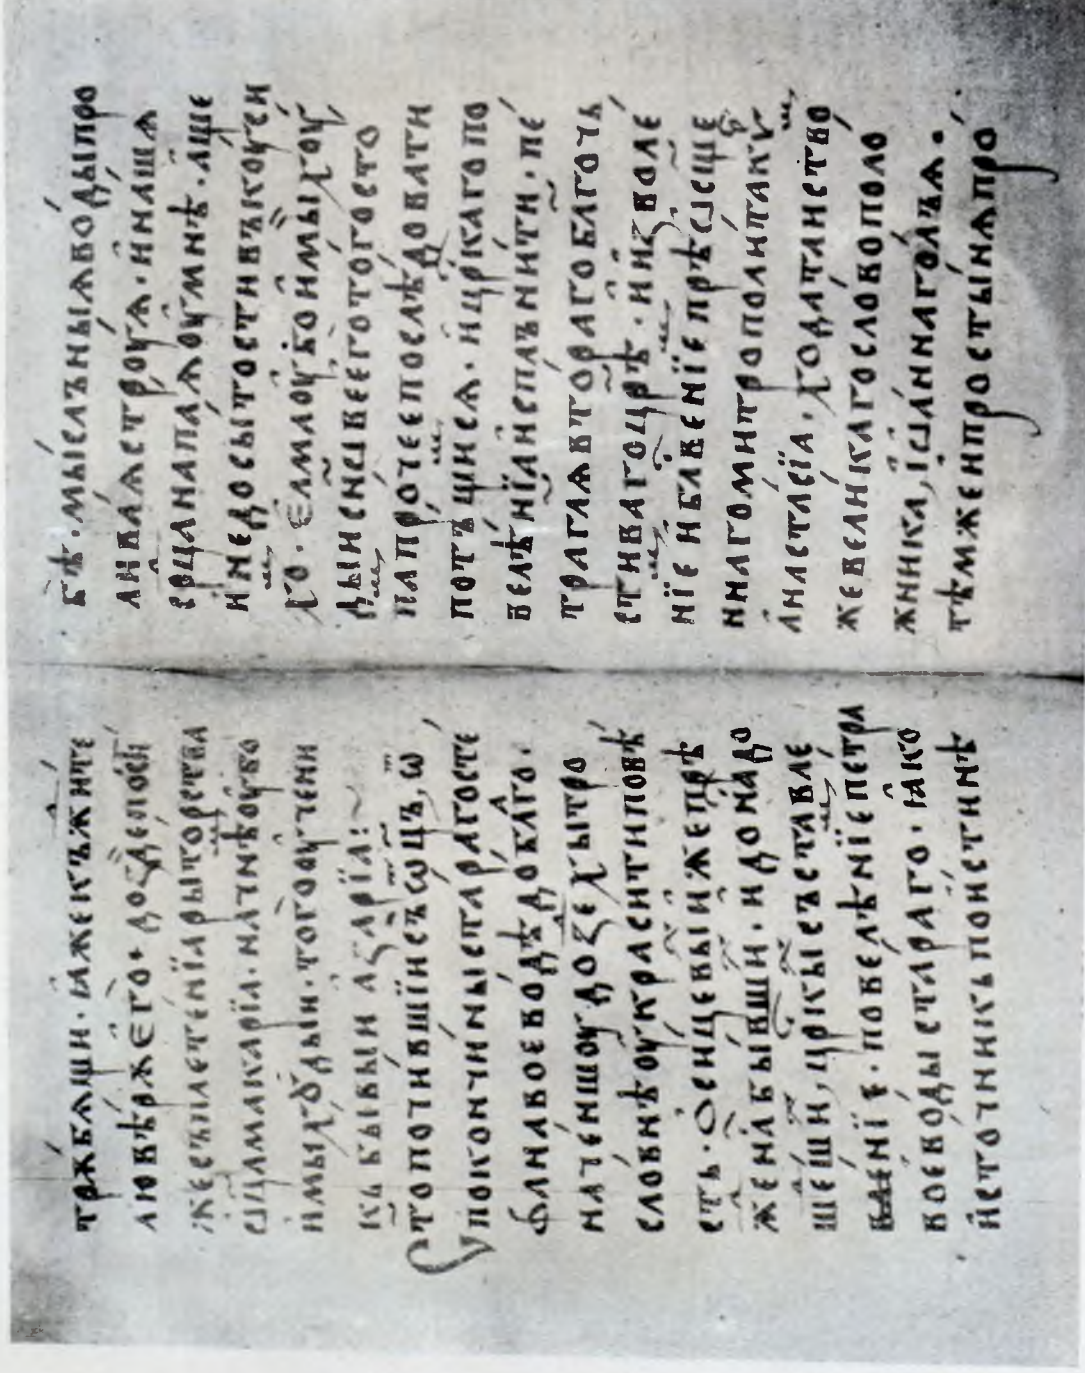 трѫбѧщи· ꙗже къ жите
любвѣ рѫ єго· до зде пое
же съплетенїа рыторства
ѡц҃а макарїа· начнѣ ѹбо
имы хꙋдыи· того ѹчени
кь бывыи азарїа:~
То почившїи съ ѡц҃ъ, ѡ
покончины стараго сте
фана воеводѣ доблаго·
наченшоу до зде хытро
словнѣ оукрасити повѣ
сть· ѻсицевыи же прѣ
жена бывши· и до на до
шеши, цр҃кы съставле
повелѣнїе петра
воеводы стараго· ꙗко
источникь поистинѣ
б҃ѣ· мысльныѧ воды про
ливаѧ строуѧ· и нашѧ
ср҃ца напаѧ оумнѣ· аще
и недосытости въкоуси
хо· єлма оубо имы хоу
дыи сицевеего того сто
па прочее последовати
потъщисѧ· и цр҃каго по
велѣнїа исплънити· пе
тра гл҃ѧ втораго благочь
стиваго цр҃ѣ· и изволе
нїе и блв҃енїе прѣѡсще
ннаго митрополита кѵ
анастасїа, ходатаиство
же великаго слово поло
жника, їѡанна гол꙽ѣѧ·
тѣмже и простынѧ про